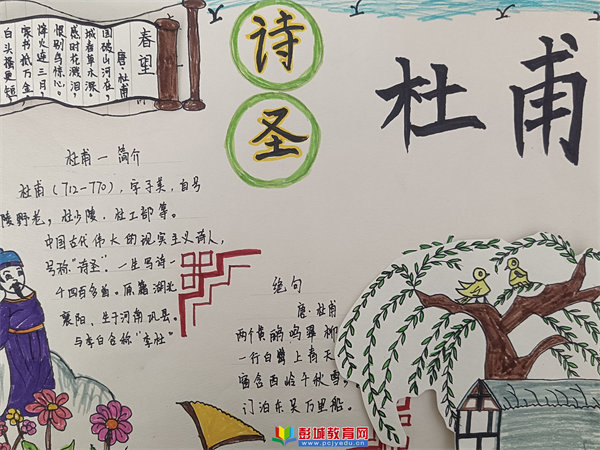 春望
唐·杜甫
国破山河在，
城春草木深。
感时花溅泪，
恨别鸟惊心。
烽火连三月，
家书抵万金
白头搔更短，
诗圣
杜甫
杜甫一简介
杜甫（712-770），字子美，自号
陵野老，杜少陵、杜工部等。
中国古代伟大的现实主义诗人，
号称“诗圣”。一生写诗一
千四百多首。原籍湖北
襄阳，生于河南巩县。
与李白合称“李杜”
绝句
唐·杜甫
两个黄鹂鸣翠柳
一行白鹭上青天
窗含西岭千秋雪，
门泊东吴万里船。
彭城教育网
www.pcjyedu.cn